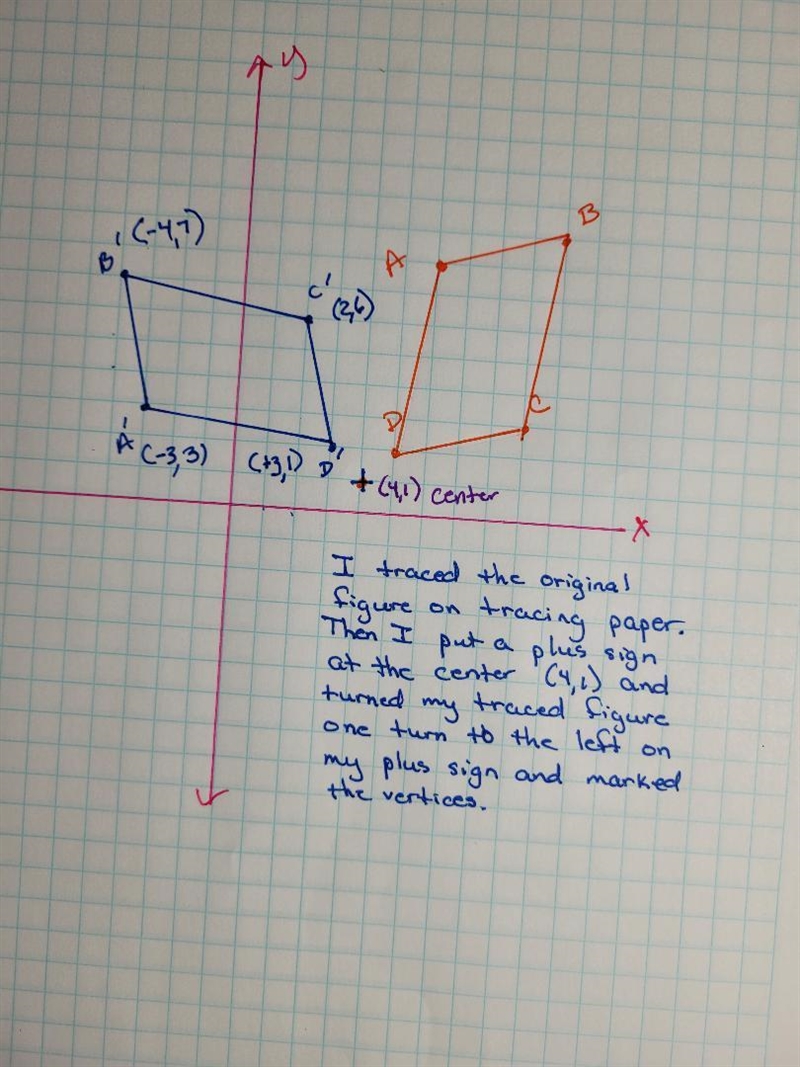 y
B
B' (-4,7)
A
C' (2,6)
D
C
A' (-3,3)
(+3,1) D'
+ (4,1) center
x
I traced the original
figure on tracing paper.
Then I put a plus sign
at the center (4,1) and
turned my traced figure
one turn to the left on
my plus sign and marked
the vertices.